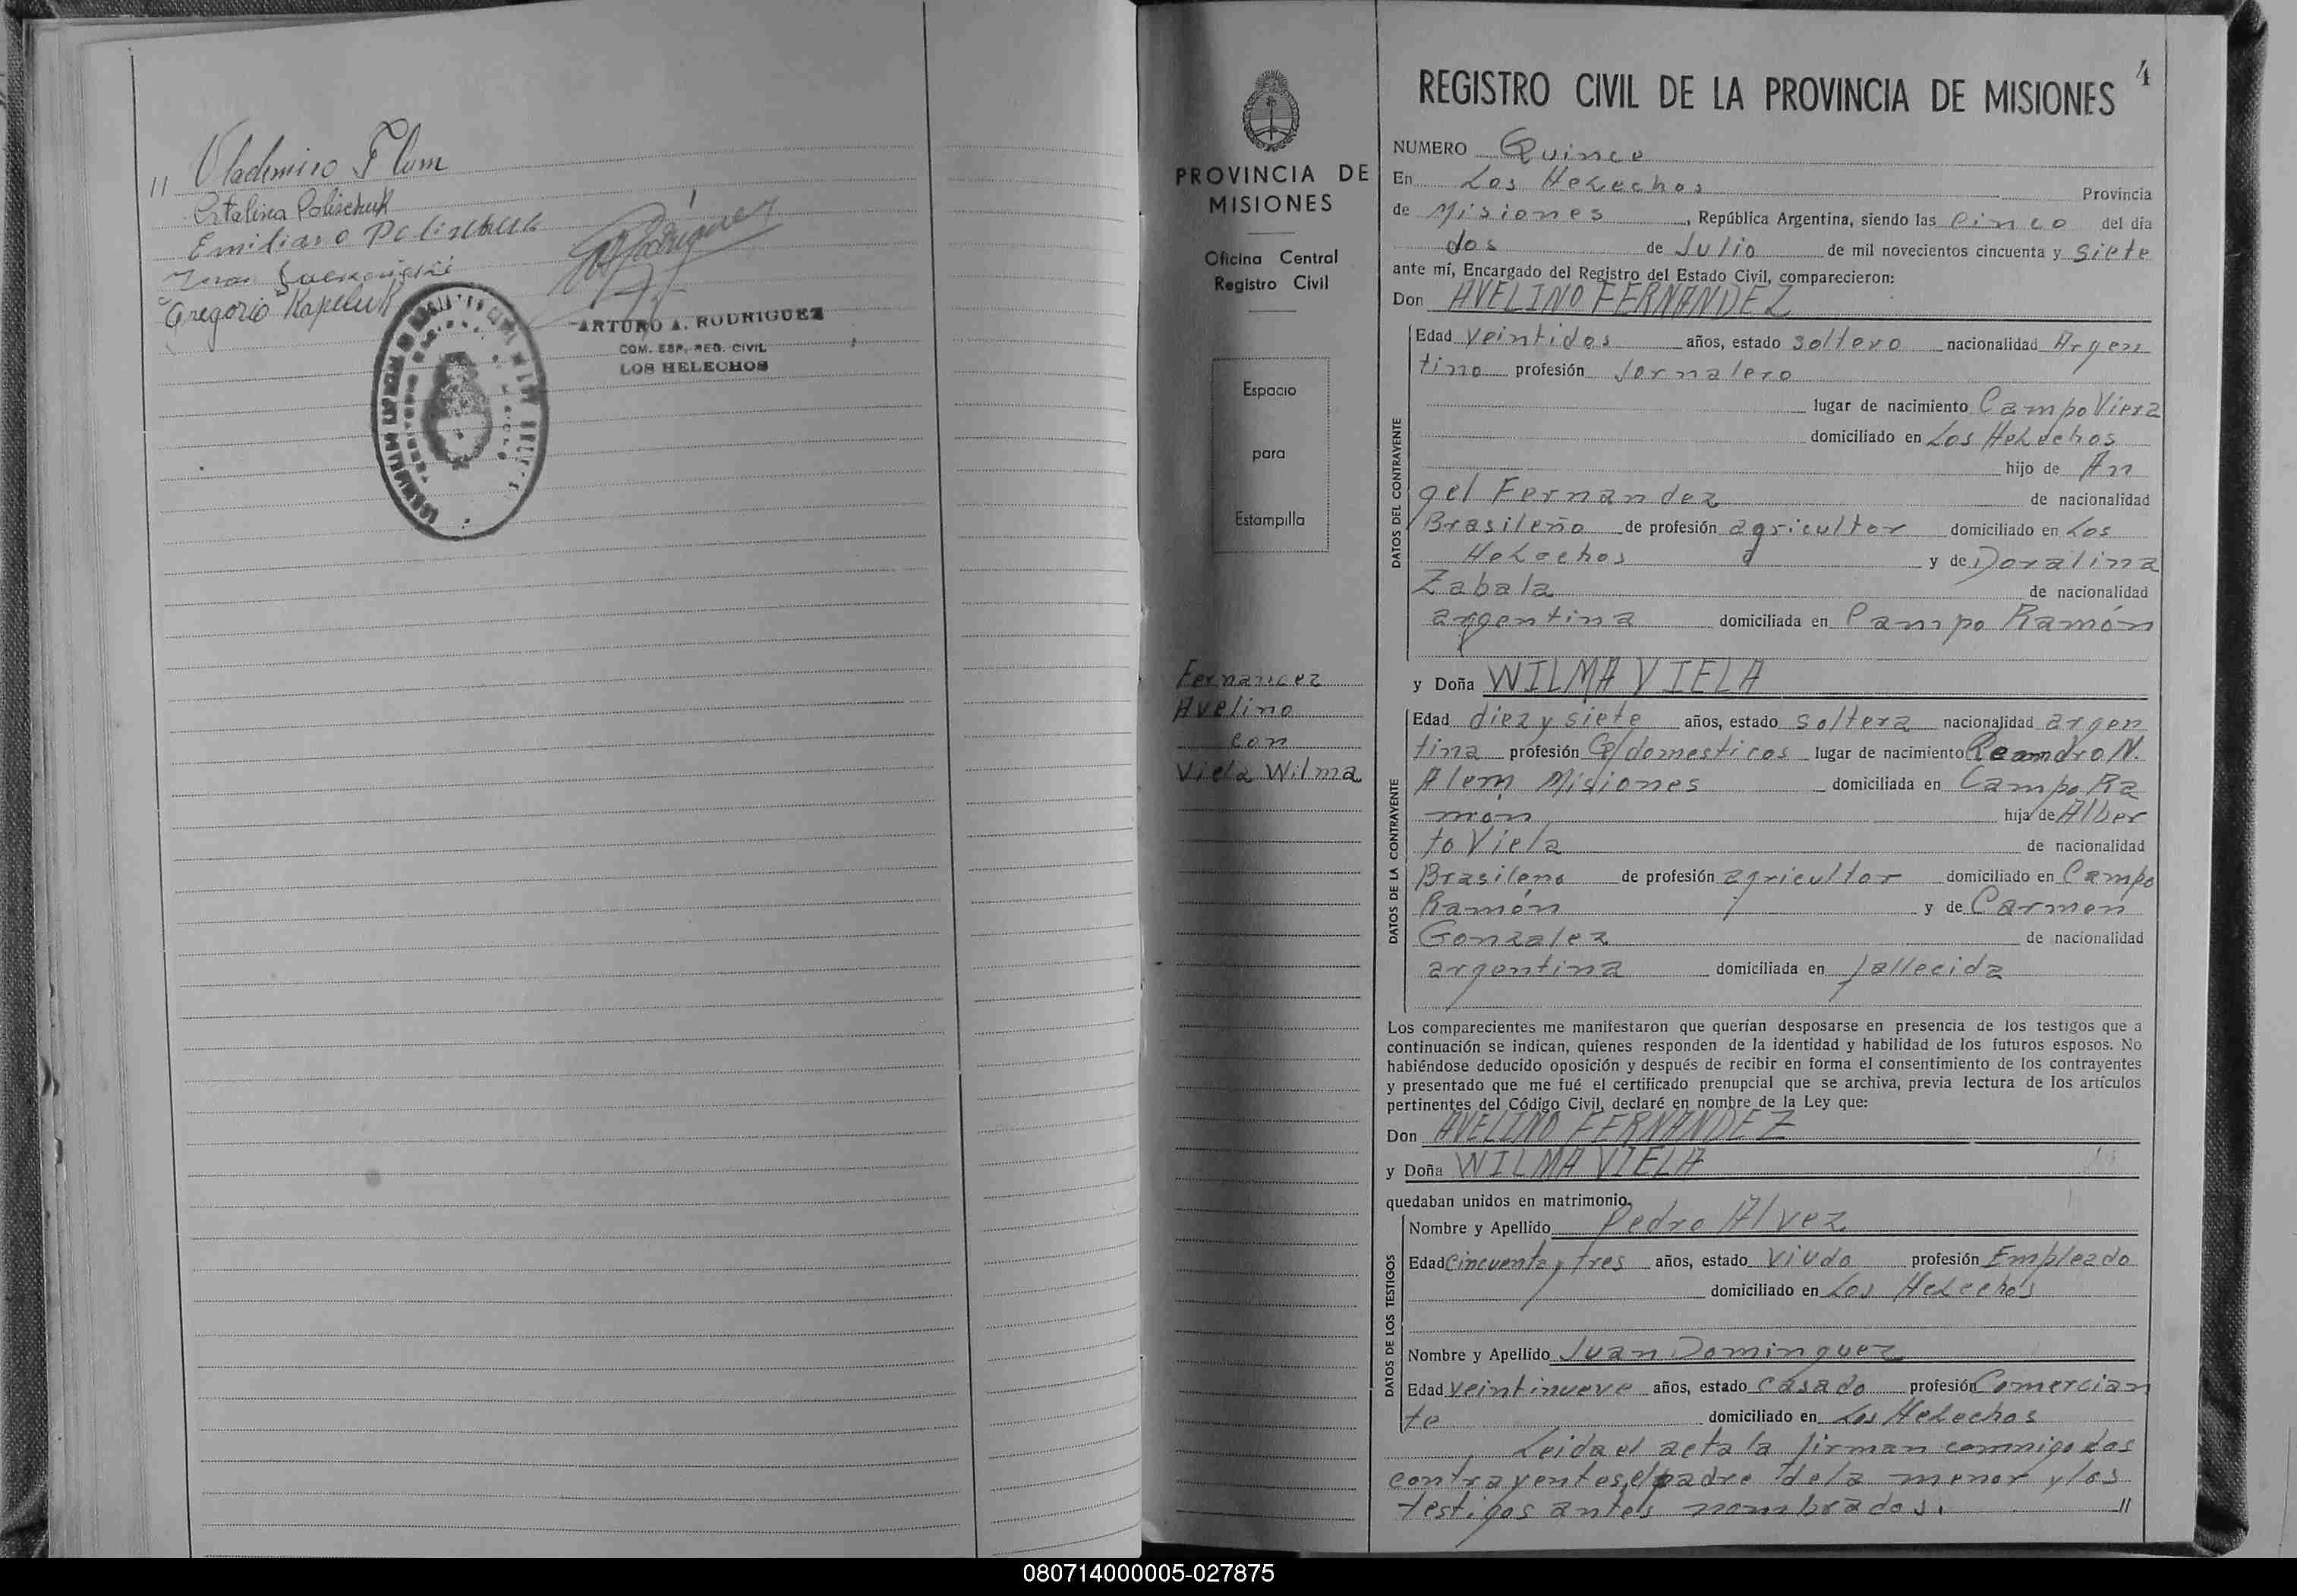 // Vladimiro Flum
Catalina Polischuk
Emiliano Polischuk
Gregorio Kapeluk
ARTURO A. RODRIGUEZ
COM. ESP. REG. CIVIL
LOS HELECHOS
PROVINCIA DE
MISIONES
Oficina Central
Registro Civil
Espacio
para
Estampilla
Fernandez
Avelino
con
Viela Wilma
4
REGISTRO CIVIL DE LA PROVINCIA DE MISIONES
NUMERO Quince
En Los Helechos Provincia
de Misiones, República Argentina, siendo las Cinco del día
dos de Julio de mil novecientos cincuenta y siete
ante mí, Encargado del Registro del Estado Civil, comparecieron:
Don AVELINO FERNANDEZ
DATOS DEL CONTRAYENTE
Edad veintidos años, estado soltero nacionalidad Argen
tino profesión Jornalero
lugar de nacimiento Campo Viera
domiciliado en Los Helechos
hijo de An
gel Fernandez de nacionalidad
Brasileño de profesión agricultor domiciliado en Los
Helechos y de Doralina
Zabala de nacionalidad
argentina domiciliada en Campo Ramón
y Doña WILMA VIELA
DATOS DE LA CONTRAYENTE
Edad diez y siete años, estado soltera nacionalidad argen
tina profesión Q/domesticos lugar de nacimiento Leandro N.
Alem Misiones domiciliada en Campo Ra
món hija de Alber
to Viela de nacionalidad
Brasileño de profesión agricultor domiciliado en Campo
Ramón y de Carmen
Gonzalez de nacionalidad
argentina domiciliada en fallecida
Los comparecientes me manifestaron que querían desposarse en presencia de los testigos que a
continuación se indican, quienes responden de la identidad y habilidad de los futuros esposos. No
habiéndose deducido oposición y después de recibir en forma el consentimiento de los contrayentes
y presentado que me fué el certificado prenupcial que se archiva, previa lectura de los artículos
pertinentes del Código Civil, declaré en nombre de la Ley que:
Don AVELINO FERNANDEZ
y Doña WILMA VIELA
quedaban unidos en matrimonio.
DATOS DE LOS TESTIGOS
Nombre y Apellido Pedro Alvez
Edad Cincuenta y tres años, estado viudo profesión Empleado
domiciliado en Los Helechos
Nombre y Apellido Juan Dominguez
Edad veintinueve años, estado casado profesión Comercian
te domiciliado en Los Helechos
Leida el acta la firman conmigo los
contrayentes, el padre de la menor y los
testigos antes nombrados. //
080714000005-027875